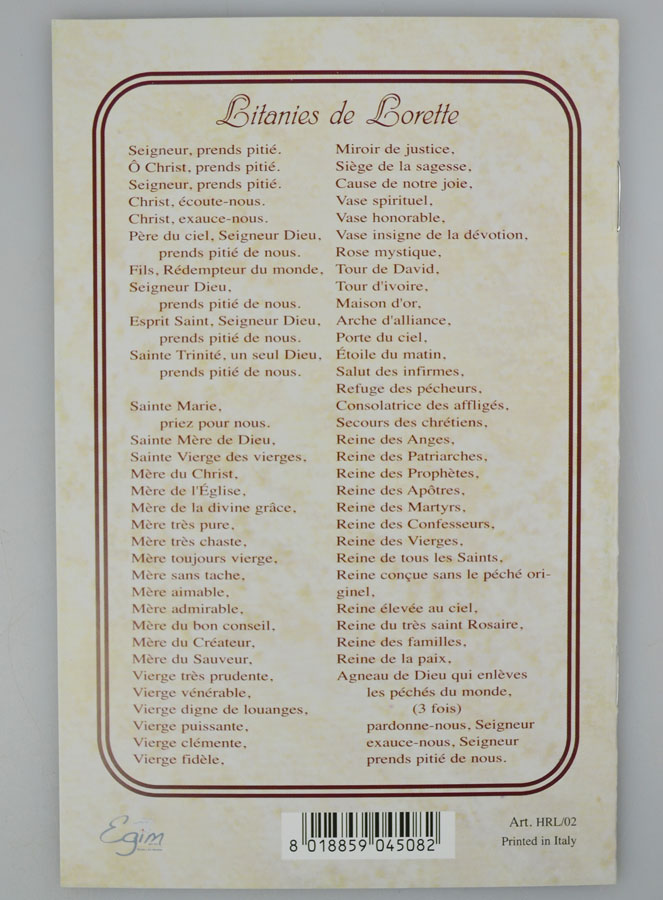 Litanies de Lorette
Seigneur, prends pitié.
Ô Christ, prends pitié.
Seigneur, prends pitié.
Christ, écoute-nous.
Christ, exauce-nous.
Père du ciel, Seigneur Dieu,
prends pitié de nous.
Fils, Rédempteur du monde,
Seigneur Dieu,
prends pitié de nous.
Esprit Saint, Seigneur Dieu,
prends pitié de nous.
Sainte Trinité, un seul Dieu,
prends pitié de nous.
Sainte Marie,
priez pour nous.
Sainte Mère de Dieu,
Sainte Vierge des vierges,
Mère du Christ,
Mère de l'Église,
Mère de la divine grâce,
Mère très pure,
Mère très chaste,
Mère toujours vierge,
Mère sans tache,
Mère aimable,
Mère admirable,
Mère du bon conseil,
Mère du Créateur,
Mère du Sauveur,
Vierge très prudente,
Vierge vénérable,
Vierge digne de louanges,
Vierge puissante,
Vierge clémente,
Vierge fidèle,
Miroir de justice,
Siège de la sagesse,
Cause de notre joie,
Vase spirituel,
Vase honorable,
Vase insigne de la dévotion,
Rose mystique,
Tour de David,
Tour d'ivoire,
Maison d'or,
Arche d'alliance,
Porte du ciel,
Étoile du matin,
Salut des infirmes,
Refuge des pécheurs,
Consolatrice des affligés,
Secours des chrétiens,
Reine des Anges,
Reine des Patriarches,
Reine des Prophètes,
Reine des Apôtres,
Reine des Martyrs,
Reine des Confesseurs,
Reine des Vierges,
Reine de tous les Saints,
Reine conçue sans le péché ori-
ginel,
Reine élevée au ciel,
Reine du très saint Rosaire,
Reine des familles,
Reine de la paix,
Agneau de Dieu qui enlèves
les péchés du monde,
(3 fois)
pardonne-nous, Seigneur
exauce-nous, Seigneur
prends pitié de nous.
Egim
8 018859 045082
Art. HRL/02
Printed in Italy